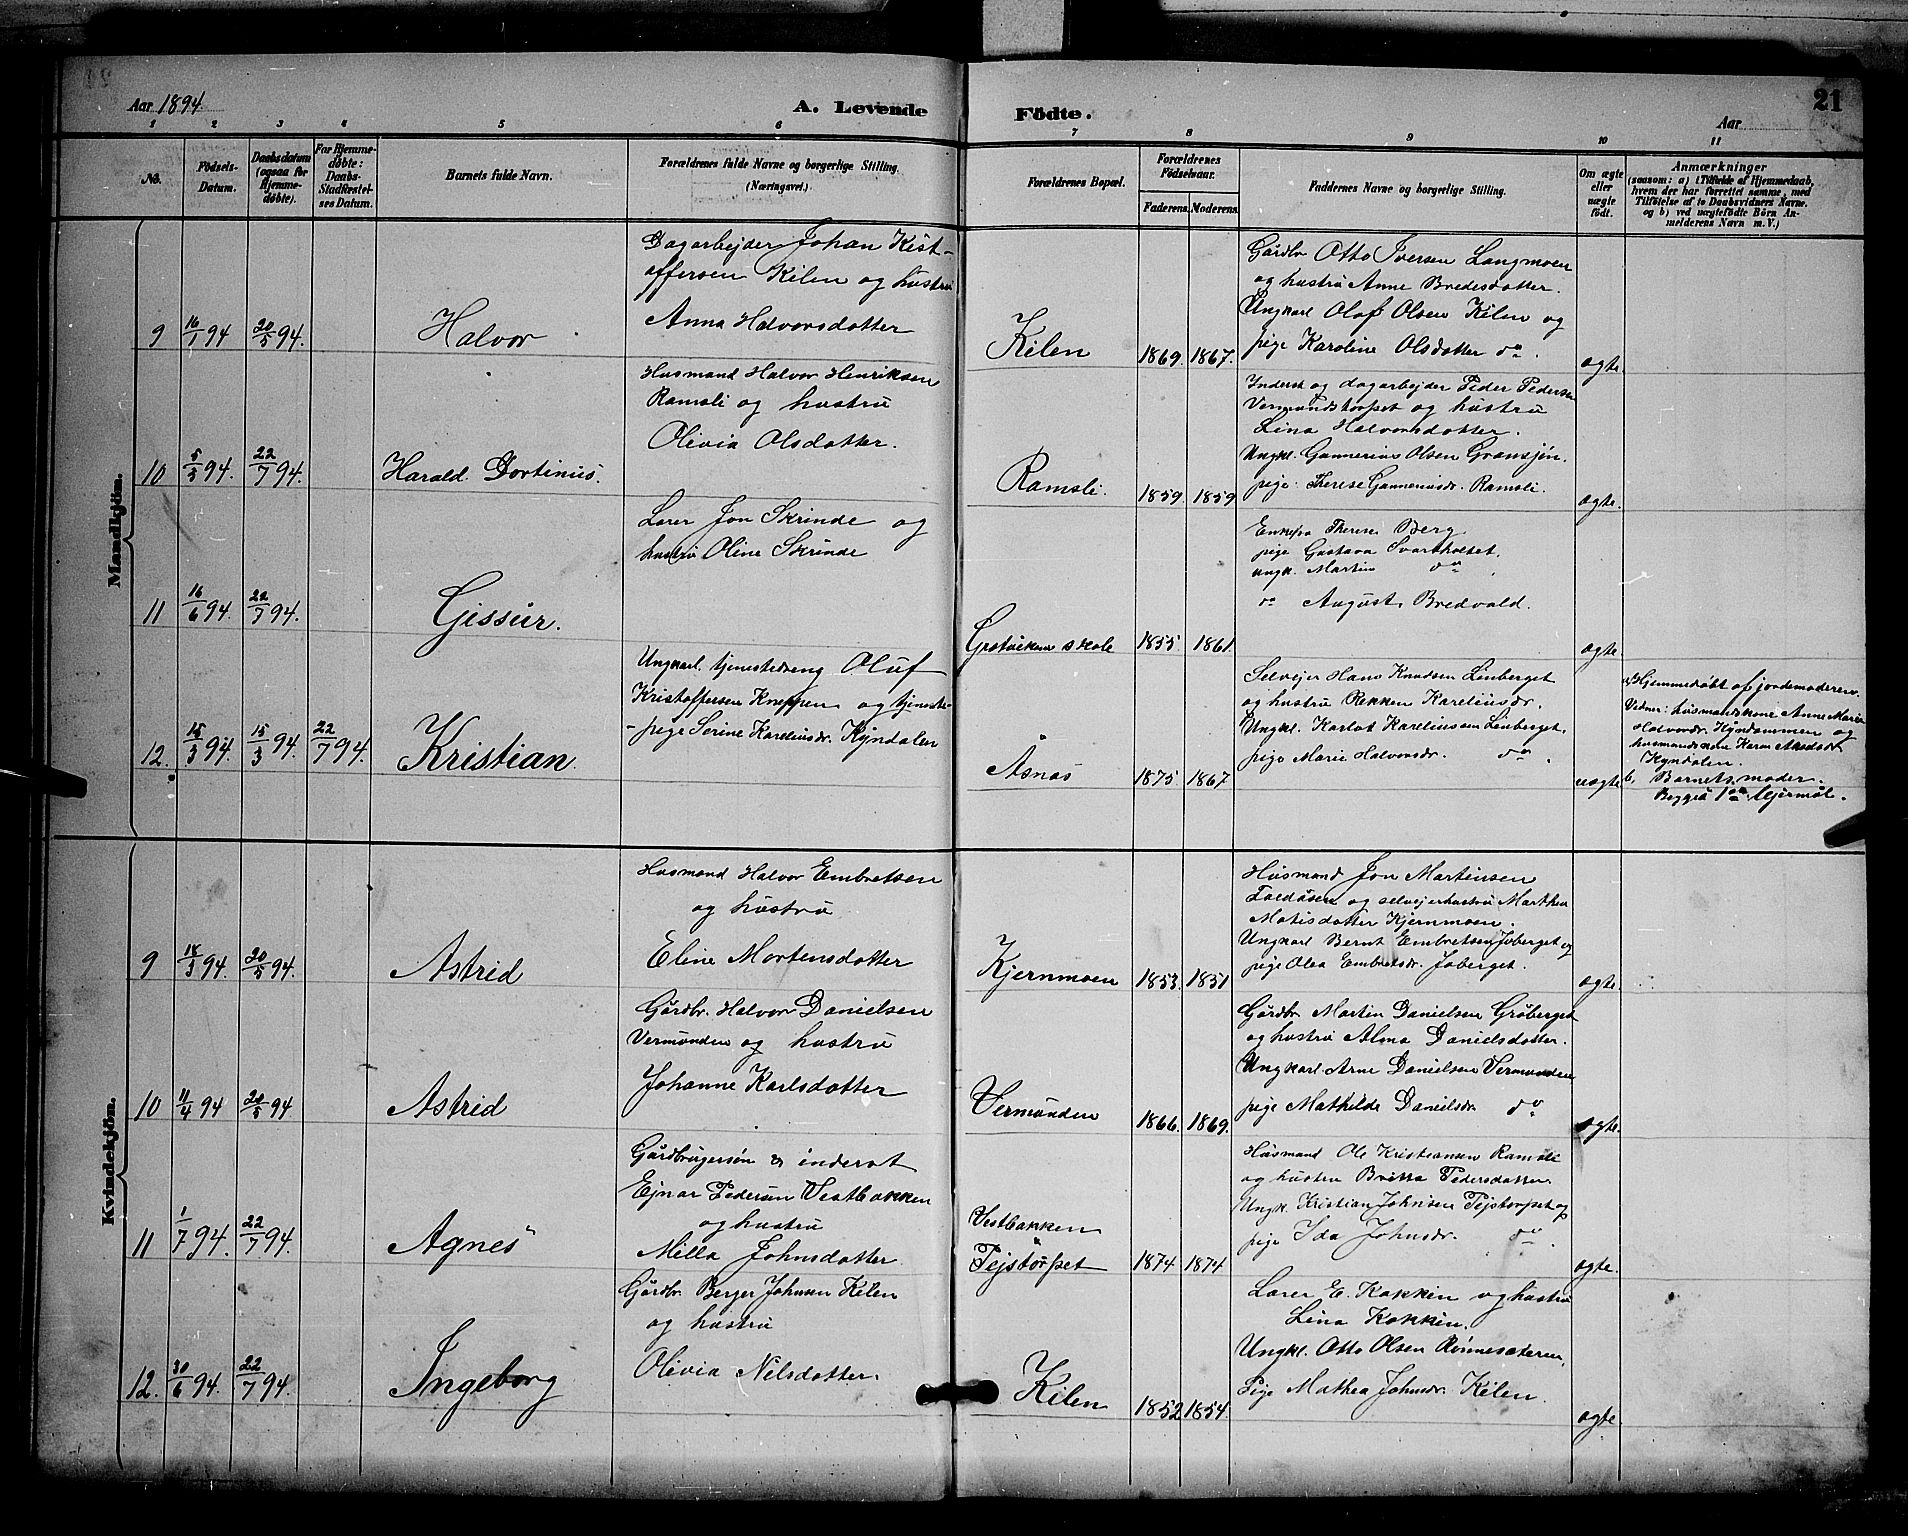 Aar 1894.
A. Levende Födte.
21
Aar
1 2 3 4 5 6 7 8 9 10 11
No.
Födsels-Datum.
Daabsdatum (ogsaa for Hjemmedöbte).
For Hjemmedöbte: Daabs-Stadfæstelses Datum.
Barnets fulde Navn.
Forældrenes fulde Navne og borgerlige Stilling.
(Næringsvei.)
Forældrenes Bopæl.
Forældrenes Födselsaar.
Faderens. Moderens.
Faddernes Navne og borgerlige Stilling.
Om ægte eller uægte födt.
Anmærkninger
(saasom: a) i Tilfælde af Hjemmedaab, hvem der har forrettet samme, med Tilföielse af to Daabsvidners Navne. og b) ved uægtefödte Börn Anmelderens Navn m. V.)
Mandkjön.
9 16/1 94 20/5 94. Halvor
Dagarbejder Johan Krist-
offersen Kilen og hustru
Anna Halvorsdatter
Kilen 1869. 1867.
Gårdbr Otto Iversen Langmoen
og hustru Anne Bredesdatter.
Ungkarl Olaf Olsen Kilen og
pige Karoline Olsdatter do.
ægte.
10 5/3 94. 22/7 94. Harald Dortinus.
Husmand Halvor Henriksen
Ramsli og hustru
Olivia Olsdatter.
Ramsli. 1859. 1859
Inderst og dagarbejder Peder Pedersen
Vermundstorpet og hustru
Lina Halvorsdatter.
Ungk. Gunnerius Olsen Gransjøn.
pige Therese Gunneriusdr. Ramsli.
ægte.
11 16/6 94. 22/7 94. Gissur.
Lærer Jon Skrinde og
hustru Oline Skrinde
Grøtvikens skole 1855 1861
Enkefru Therese Berg
pige Gustava Svartholtet.
Ungk. Martin do.
do August Bredvald.
ægte.
12. 15/3 94. 15/3 94. 22/7 94. Kristian.
Ungkarl, tjenestedreng Oluf
Kristoffersen Kneppen og tjeneste-
-pige Serine Kareliusdr. Kyndalen
Åsnæs 1875. 1867
Selvejer Hans Knudsen Linberget
og hustru Rikken Kareliusdr.
Ungk. Karlot Kareliussen Linberget,
pige Marie Halvorsdr. do.
uægte
a, Hjemmedøbt af jordemoderen.
Vidner: husmandskone Anne Marie
Halvorsdr. Kyndammen og
husmandskone Karen
Kyndalen.
b. Barnets moder.
Begges 1ste lejermål.
Kvindekjön.
9 18/3 94. 20/5 94. Astrid
Husmand Halvor Embretsen
og hustru
Eline Mortensdatter
Kjernmoen 1853. 1851
Husmand Jon Martinsen
og selvejerhustru Marthea
Matisdatter Kjernmoen.
Ungkarl Bernt Embretsen Joberget og
pige Olea Embretsdr. Joberget.
ægte.
10 11/4 94 20/5 94 Astrid
Gårdbr. Halvor Danielsen
Vermunden og hustru
Johanne Karlsdatter
Vermunden 1866. 1869.
Gårdbr. Martin Danielsen Gråberget
og hustru Alma Danielsdatter.
Ungkarl Arne Danielsen Vermunden
pige Mathilde Danielsdr. do.
ægte.
11 1/7 94. 22/7 94. Agnes
Gårdbrugersøn & inderst
Ejnar Pedersen Vestbakken
og hustru
Milla Johnsdatter
Vestbakken
Tejstorpet 1874 1874
Husmand Ole Kristiansen Ramsli
og hustru Britta Pedersdatter
Ungk. Kristian Johnsen Tejstorpet og
pige Ida Johnsdr. do.
ægte.
12. 30/6 94. 22/7 94. Ingeborg
Gårdbr. Berger Johnsen Kilen
og hustru
Olivia Nilsdatter.
Kilen 1852 1854.
Lærer E. Kokkin og hustru
Lina Kokkin.
Ungk. Otto Olsen Rønnesæteren,
Pige Mathea Johnsdr. Kilen.
ægte.